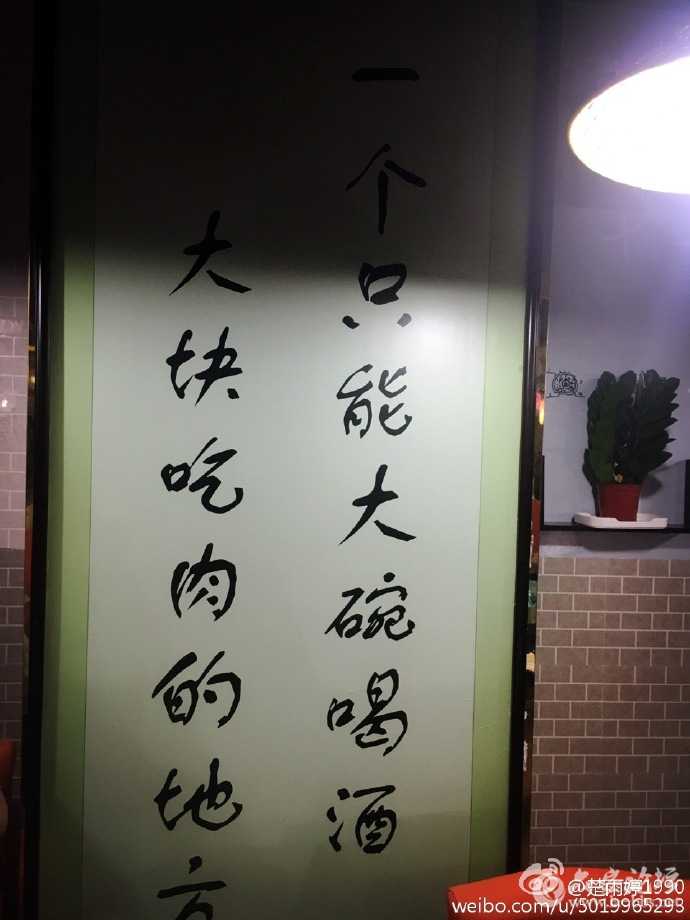 一个只能大碗喝酒
大块吃肉的地方
@楚雨婷1990
weibo.com/u/5019965293